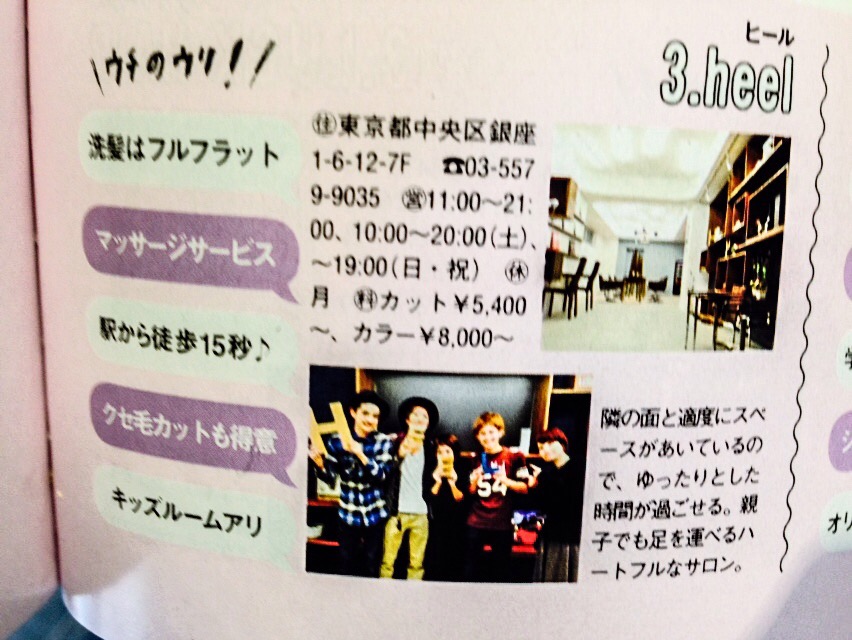 \ウチのウリ!/
洗髪はフルフラット
マッサージサービス
駅から徒歩15秒♪
クセ毛カットも得意
キッズルームアリ
ヒール
3.heel
㊟東京都中央区銀座
1-6-12-7F ☎03-557
9-9035 ㊢11:00〜21:
00、10:00〜20:00(土)、
〜19:00(日・祝) ㊡
月 ㊮カット¥5,400
〜、カラー¥8,000〜
54
隣の面と適度にスペ
ースがあいているの
で、ゆったりとした
時間が過ごせる。親
子でも足を運べるハ
ートフルなサロン。